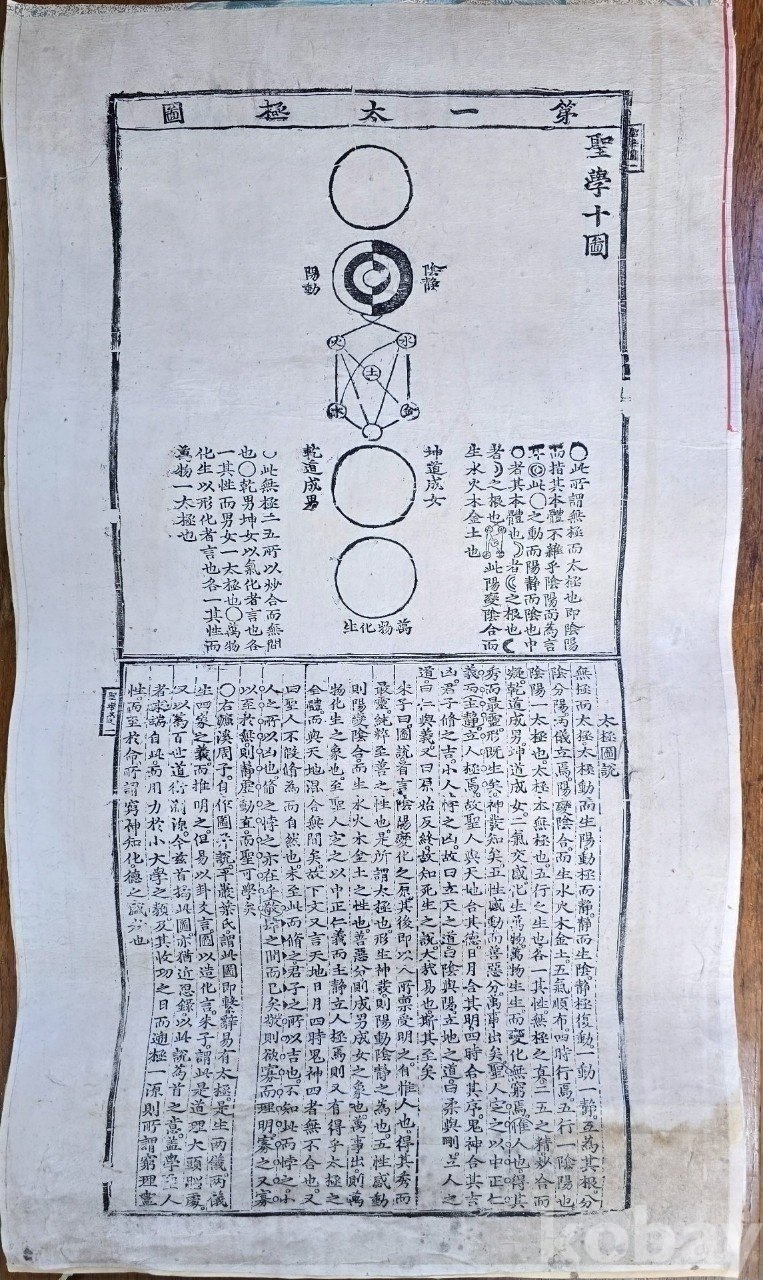 第一太極圖
聖學十圖
陰靜
陽動
水
火
土
金
木
坤道成女
乾道成男
萬物化生
◯此所謂無極而太極也即陰陽
而指其本體不雜乎陰陽而為言
耳此◯之動而陽靜而陰也中
◯者其本體也☽者☾之根也☾
者☽之根也此陽變陰合而
生水火木金土也
此無極二五所以妙合而無間
也◯乾男坤女以氣化者言也各
一其性而男女一太極也◯萬物
化生以形化者言也各一其性而
萬物一太極也
太極圖說
無極而太極太極動而生陽動極而靜靜而生陰靜極復動一動一靜互為其根分
陰分陽兩儀立焉陽變陰合而生水火木金土五氣順布四時行焉五行一陰陽也
陰陽一太極也太極本無極也五行之生也各一其性無極之真二五之精妙合而
凝乾道成男坤道成女二氣交感化生萬物萬物生生而變化無窮焉惟人也得其
秀而最靈形既生矣神發知矣五性感動而善惡分萬事出矣聖人定之以中正仁
義而主靜立人極焉故聖人與天地合其德日月合其明四時合其序鬼神合其吉
凶君子脩之吉小人悖之凶故曰立天之道曰陰與陽立地之道曰柔與剛立人之
道曰仁與義又曰原始反終故知死生之說大哉易也斯其至矣
朱子曰圖說首言陰陽變化之原其後即以人所稟受明之自惟人也得其秀而
最靈純粹至善之性也是所謂太極也形生神發則陽動陰靜之為也五性感動
則陽變陰合而生水火木金土之性也善惡分則成男成女之象也萬事出則萬
物化生之象也至聖人定之以中正仁義而主靜立人極焉則又有得乎太極之
全體而與天地混合無間矣故下文又言天地日月四時鬼神四者無不合也又
曰聖人不假脩為而自然也未至此而脩之君子之所以吉也不知此而悖之小
人之所以凶也脩之悖之亦在乎敬肆之間而已矣敬則欲寡而理明寡之又寡
以至於無則靜虛動直而聖可學矣
◯右濂溪周子自作圖并說平巖葉氏謂此圖即繫辭易有太極是生兩儀兩儀
生四象之義而推明之但易以卦爻言圖以造化言朱子謂此是道理大頭腦處
又以為百世道術淵源今玆首揭此圖亦猶近思錄以此說為首之意蓋學聖人
者求端自此而用力於小大學之類及其收功之日而遡極一源則所謂窮理盡
性而至於命所謂窮神知化德之盛者也
kobay